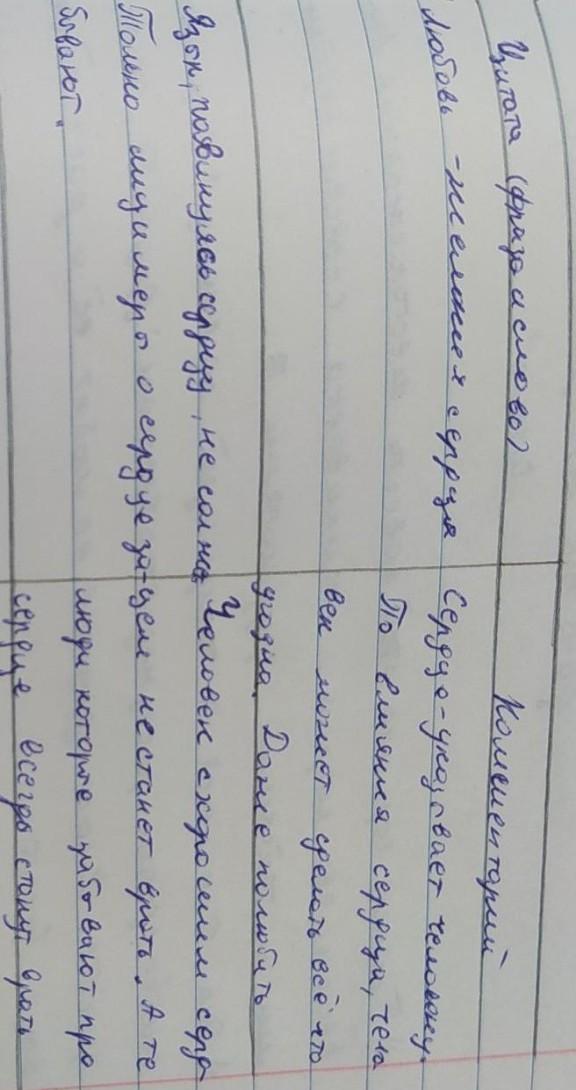 Цитата (фраза и слово)
Коменторий
Любовь - желания сердца
Сердце - указывает человеку.
По влияния сердца, чело
век может сделать всё что
угодна. Даже полюбить
Язык, повинуясь сердцу, не солжа
Только лицимеры о сердце за-
бывают.
Человек с хорошим серд-
цем не станет врать. А те
люди которые забывают про
сердце всегда станут врать